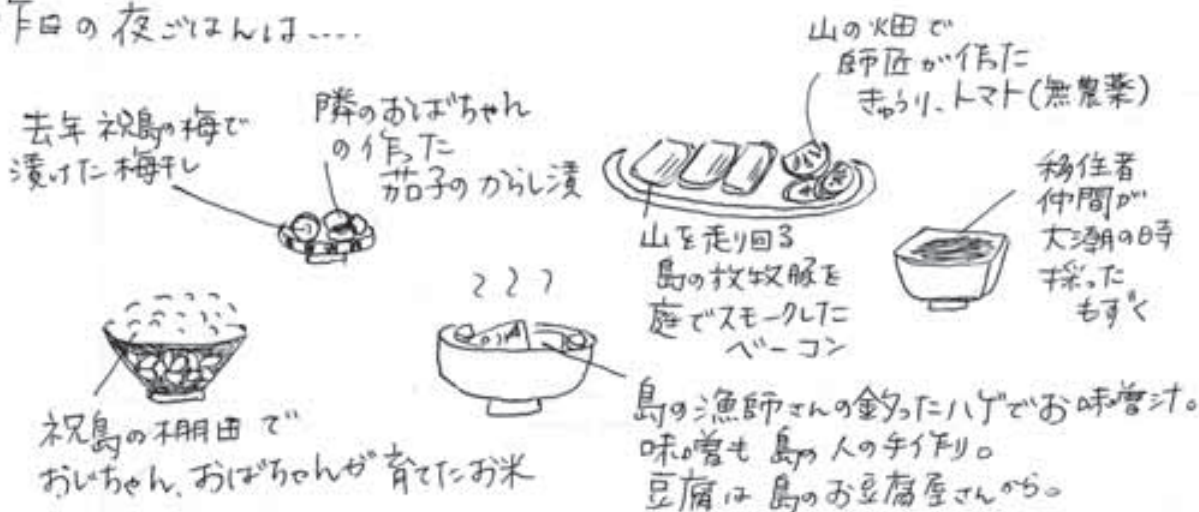 昨日の夜ごはんは....
去年 祝島の梅で
漬けた梅干し
隣のおばちゃん
の作った
茄子のからし漬
山の畑で
師匠が作った
きゅうり、トマト(無農薬)
山を走り回る
島の放牧豚を
庭でスモークした
ベーコン
移住者
仲間が
大潮の時
採った
もずく
祝島の棚田で
おじちゃん、おばちゃんが育てたお米
島の漁師さんの釣ったハゲでお味噌汁。
味噌も島の人の手作り。
豆腐は島のお豆腐屋さんから。